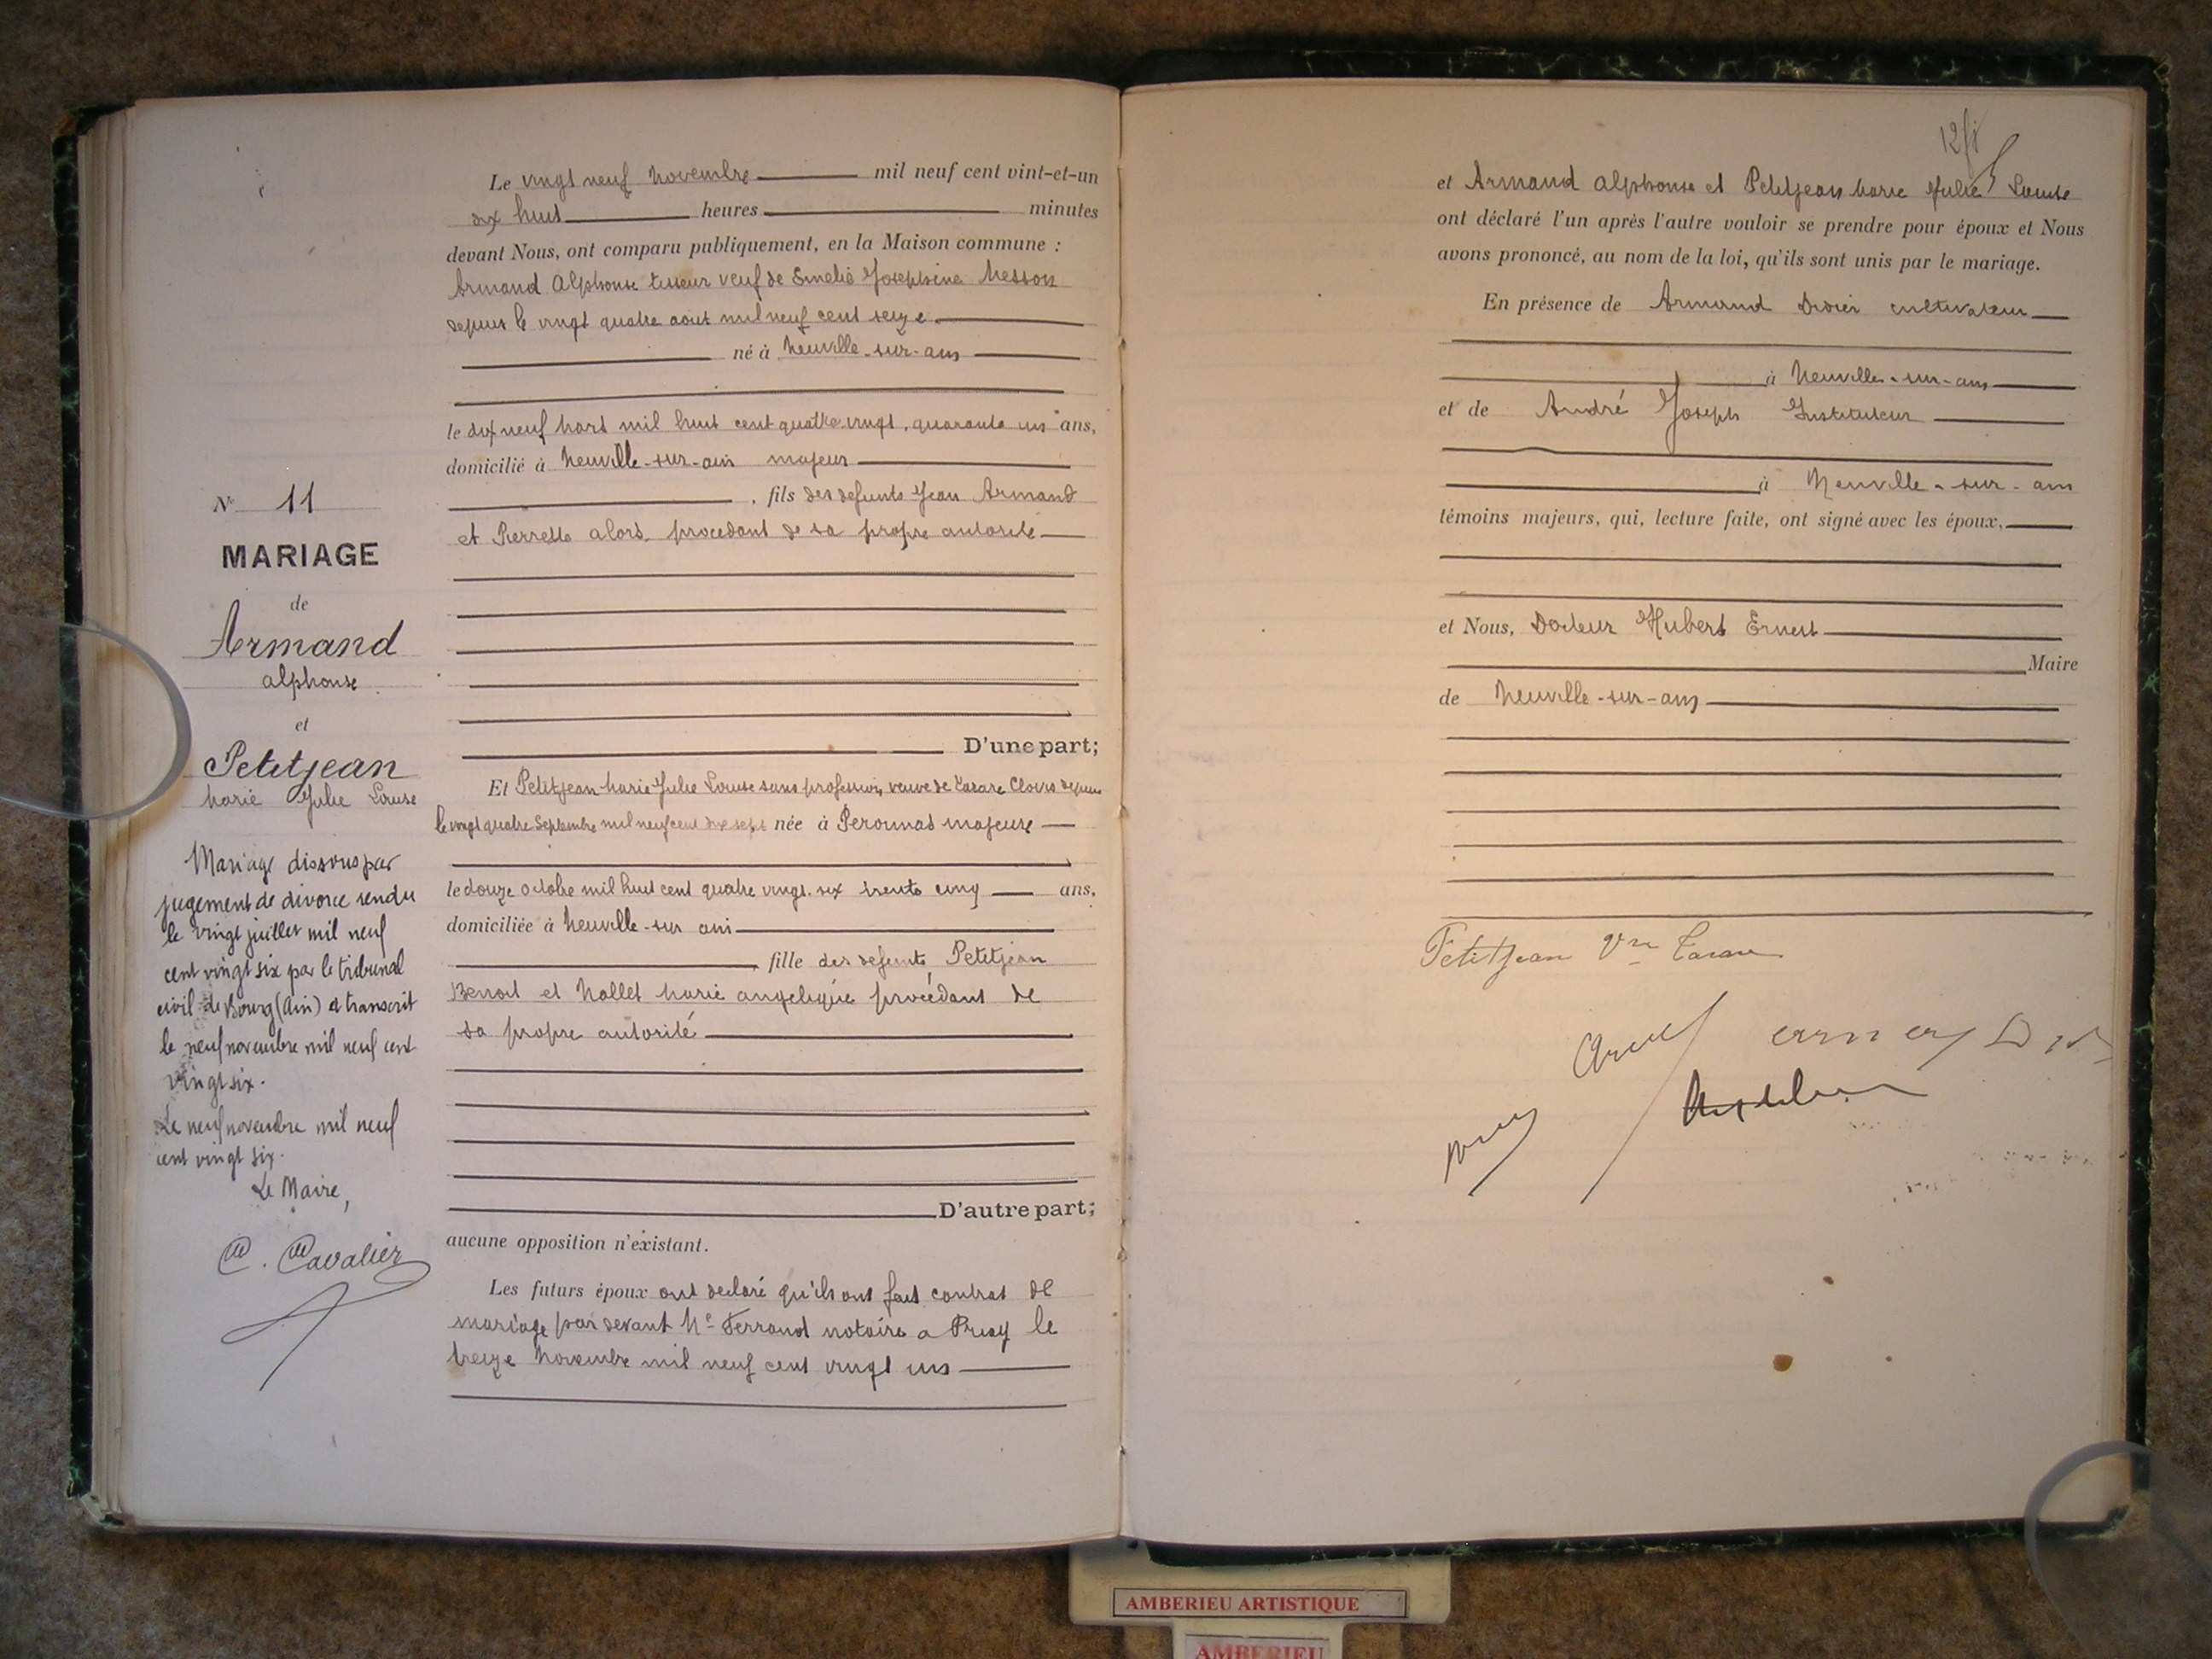 Le vingt neuf Novembre mil neuf cent vint-et-un
dix huit heures minutes
devant Nous, ont comparu publiquement, en la Maison commune :
Armand Alphonse veuf de Emelie Josephine Messon
depuis le vingt quatre aout mil neuf cent seize
né à Neuville-sur-ain
le dix neuf Mars mil huit cent quatre vingt, quarante un ans,
domicilié à Neuville-sur-ain majeur
, fils des defunts Jean Armand
et Pierrette alors, procedant de sa propre autorité
N° 11
MARIAGE
de
Armand
alphonse
et
Petitjean
Marie Julie Louise
D'une part;
Et Petitjean Marie Julie Louise sans profession, veuve de Clovis depuis
le vingt quatre Septembre mil neuf cent dix sept née à Peronnas majeure
le douze octobre mil huit cent quatre vingt six trente cinq ans,
domiciliée à Neuville-sur ain
fille des defunts Petitjean
Benoit et Nallet Marie angelique procédant de
sa propre autorité
Mariage dissous par
jugement de divorce rendu
le vingt juillet mil neuf
cent vingt six par le tribunal
civil de Bourg (Ain) et transcrit
le neuf novembre mil neuf cent
vingt six.
Le neuf novembre mil neuf
cent vingt six.
Le Maire,
C. Cavalier
D'autre part;
aucune opposition n'existant.
Les futurs époux ont declaré qu'ils ont fait contrat de
mariage par devant Me Ferrand notaire a le
treize Novembre mil neuf cent vingt un
et Armand alphonse et Petitjean Marie Julie Louise
ont déclaré l'un après l'autre vouloir se prendre pour époux et Nous
avons prononcé, au nom de la loi, qu'ils sont unis par le mariage.
En présence de Armand Didier cultivateur
à Neuville-sur-ain
et de André Joseph Instituteur
à Neuville-sur-ain
témoins majeurs, qui, lecture faite, ont signé avec les époux,
et Nous, Docteur Hubert Ernest
Maire
de Neuville-sur-ain
Petitjean Vve
AMBERIEU ARTISTIQUE
AMBERIEU